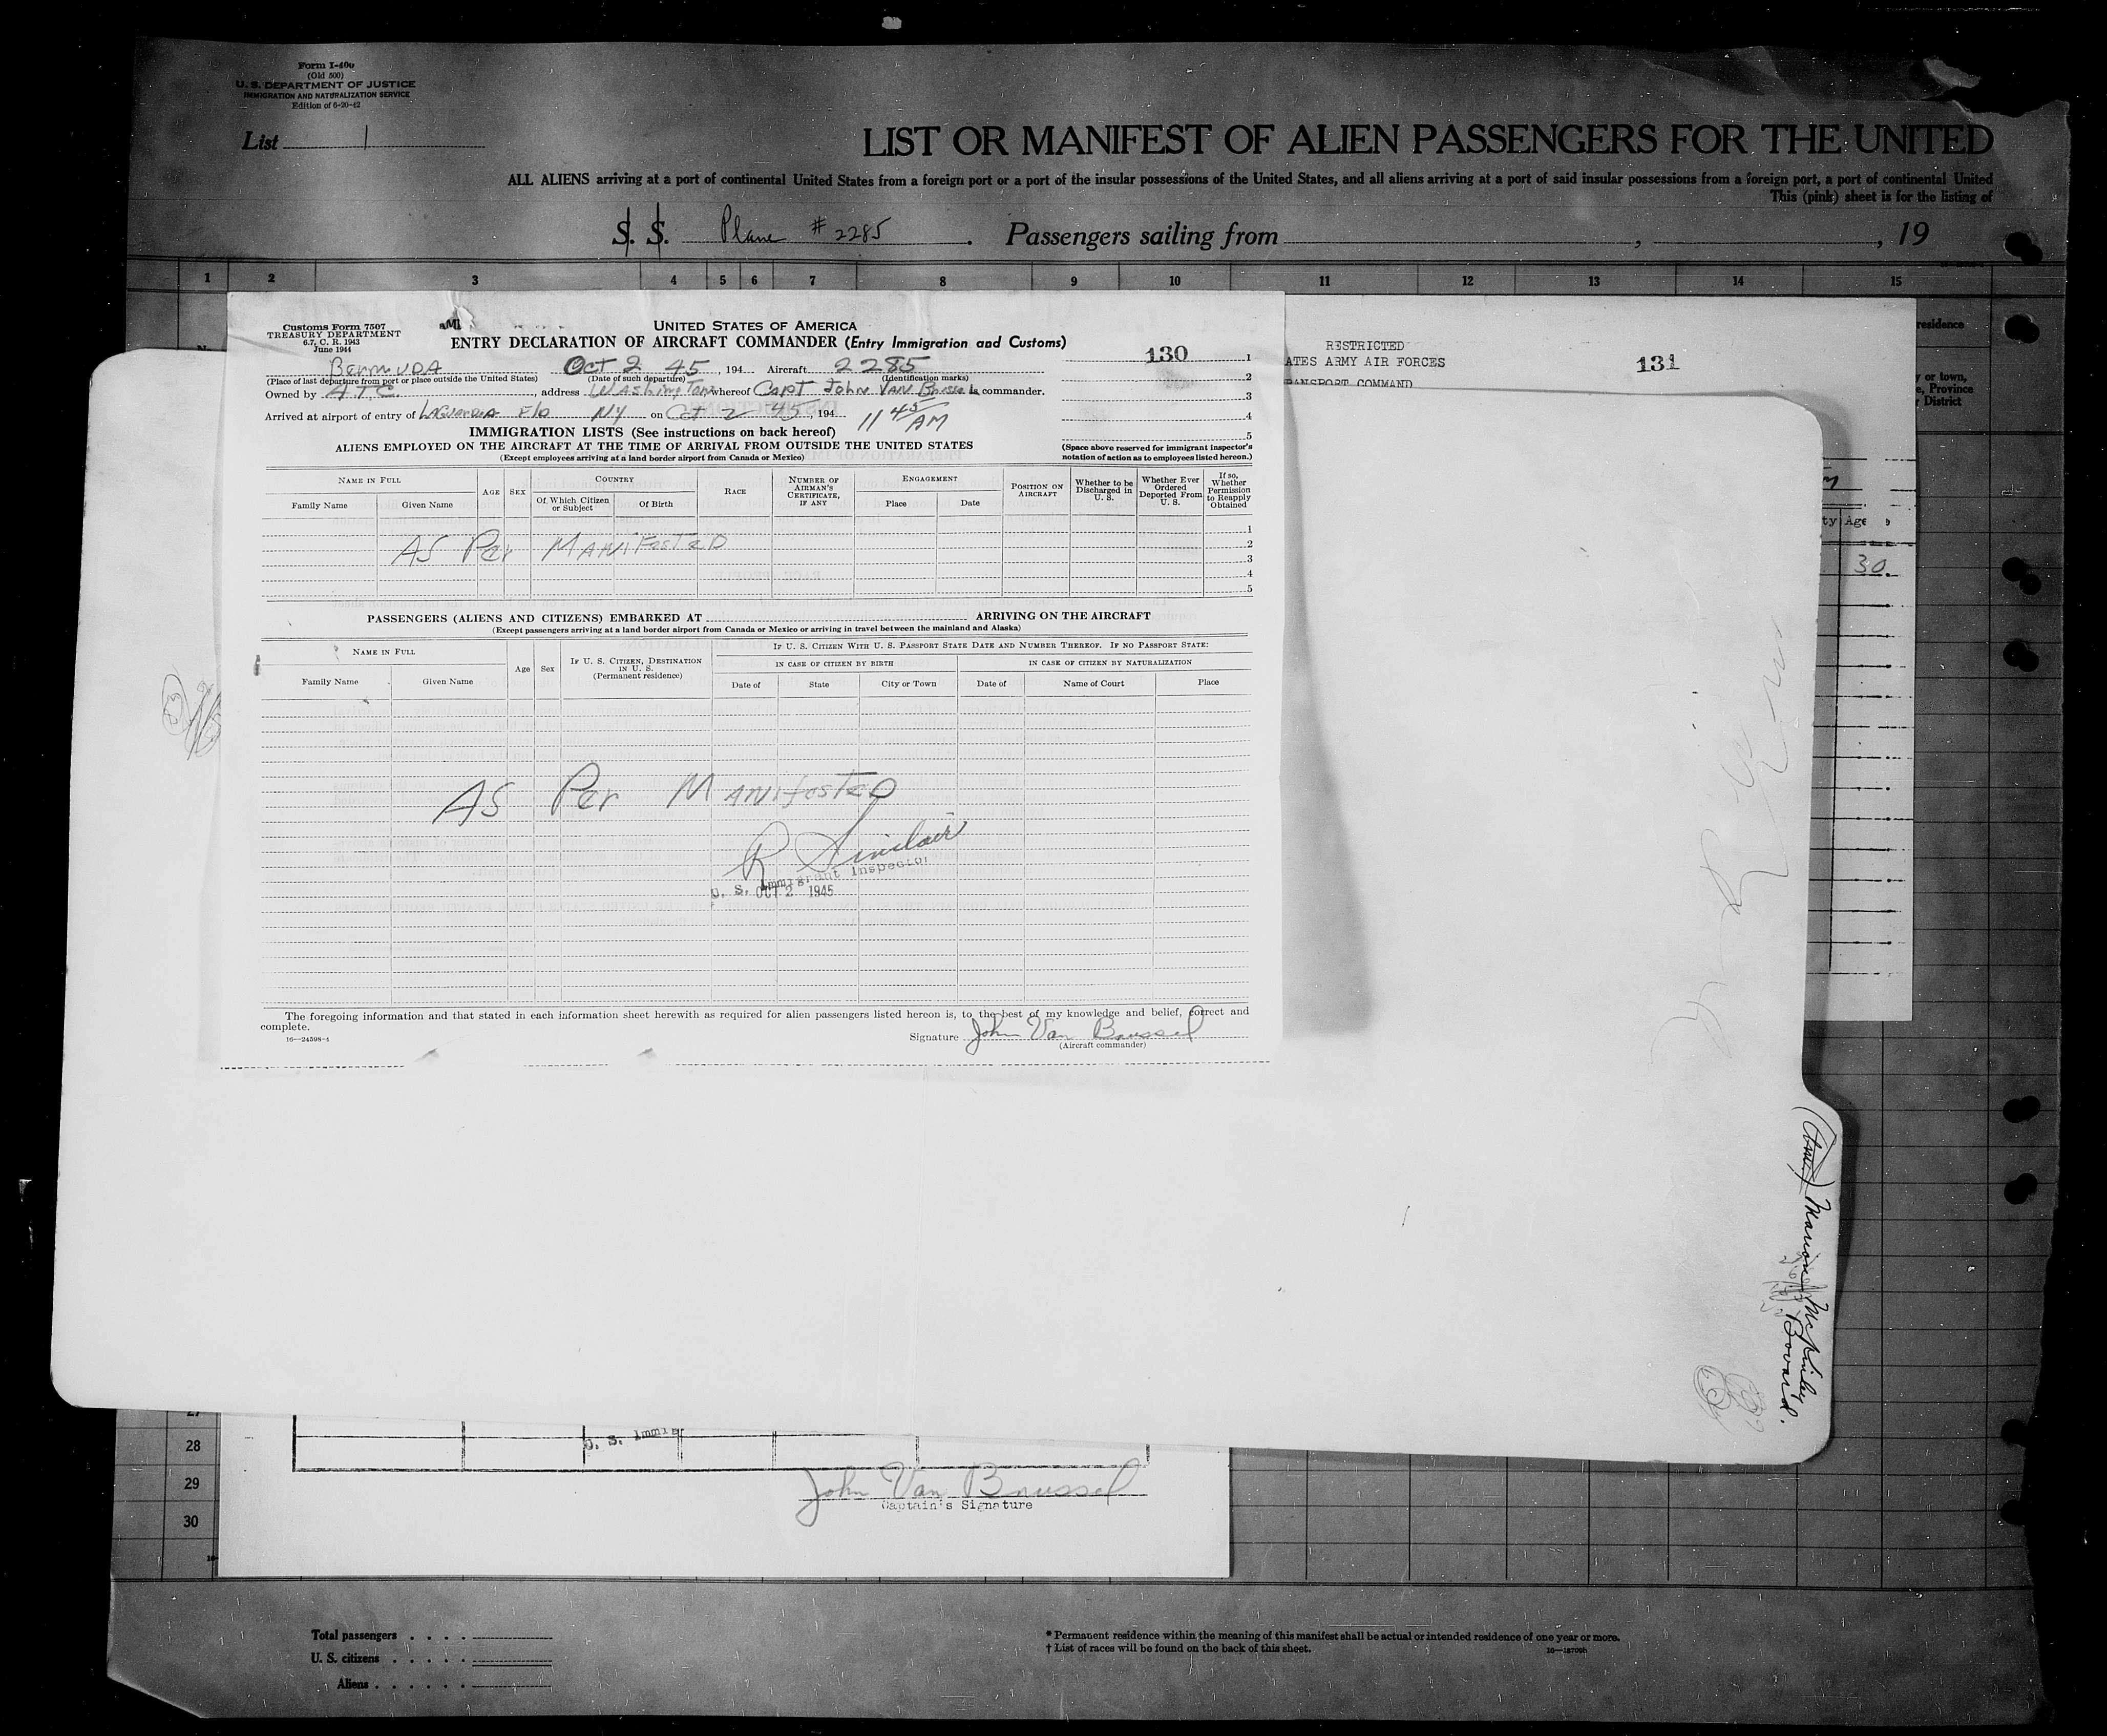 Form I-400
(Old 500)
U. S. DEPARTMENT OF JUSTICE
IMMIGRATION AND NATURALIZATION SERVICE
Edition of 6-20-42
List 1
LIST OR MANIFEST OF ALIEN PASSENGERS FOR THE UNITED
ALL ALIENS arriving at a port of continental United States from a foreign port or a port of the insular possessions of the United States, and all aliens arriving at a port of said insular possessions from a foreign port, a port of continental United
This (pink) sheet is for the listing of
S. S. Plane # 2285 . Passengers sailing from , , 19
1 2 3 4 5 6 7 8 9 10 11 12 13 14 15
residence
y or town,
e, Province
District
Customs Form 7507
TREASURY DEPARTMENT
6.7, C. R. 1943
June 1944
UNITED STATES OF AMERICA
ENTRY DECLARATION OF AIRCRAFT COMMANDER (Entry Immigration and Customs)
130
Bermuda Oct 2 45, 194 Aircraft 2285
(Place of last departure from port or place outside the United States) (Date of such departure) (Identification marks)
Owned by A.T.C. , address Washington whereof Capt John Van is commander.
Arrived at airport of entry of LaGuardia Fld NY on Oct 2 45, 194 11 45 AM
IMMIGRATION LISTS (See instructions on back hereof)
ALIENS EMPLOYED ON THE AIRCRAFT AT THE TIME OF ARRIVAL FROM OUTSIDE THE UNITED STATES
(Except employees arriving at a land border airport from Canada or Mexico)
1
2
3
4
5
(Space above reserved for immigrant inspector's
notation of action as to employees listed hereon.)
NAME IN FULL
Family Name Given Name
AGE SEX
COUNTRY
Of Which Citizen or Subject
Of Birth
RACE
NUMBER OF AIRMAN'S CERTIFICATE, IF ANY
ENGAGEMENT
Place Date
POSITION ON AIRCRAFT
Whether to be Discharged in U. S.
Whether Ever Ordered Deported From U. S.
If so, Whether Permission to Reapply Obtained
AS Per MANIFESTED
1
2
3
4
5
PASSENGERS (ALIENS AND CITIZENS) EMBARKED AT ARRIVING ON THE AIRCRAFT
(Except passengers arriving at a land border airport from Canada or Mexico or arriving in travel between the mainland and Alaska)
NAME IN FULL
Family Name Given Name
Age Sex
IF U. S. CITIZEN, DESTINATION IN U. S.
(Permanent residence)
IF U. S. CITIZEN WITH U. S. PASSPORT STATE DATE AND NUMBER THEREOF. IF NO PASSPORT STATE:
IN CASE OF CITIZEN BY BIRTH IN CASE OF CITIZEN BY NATURALIZATION
Date of State City or Town Date of Name of Court Place
AS Per MANIFESTED
R Sinclair
U. S. Immigrant Inspector
OCT 2 1945
The foregoing information and that stated in each information sheet herewith as required for alien passengers listed hereon is, to the best of my knowledge and belief, correct and
complete.
16—24598-1
Signature John Van Brussel
(Aircraft commander)
RESTRICTED
ATES ARMY AIR FORCES
RANSPORT COMMAND
131
ty Age
30
Marion McKinley
Bovard.
27
28
29
30
U. S. Immig
John Van Brussel
Captain's Signature
Total passengers
U. S. citizens
Aliens
* Permanent residence within the meaning of this manifest shall be actual or intended residence of one year or more.
† List of races will be found on the back of this sheet.